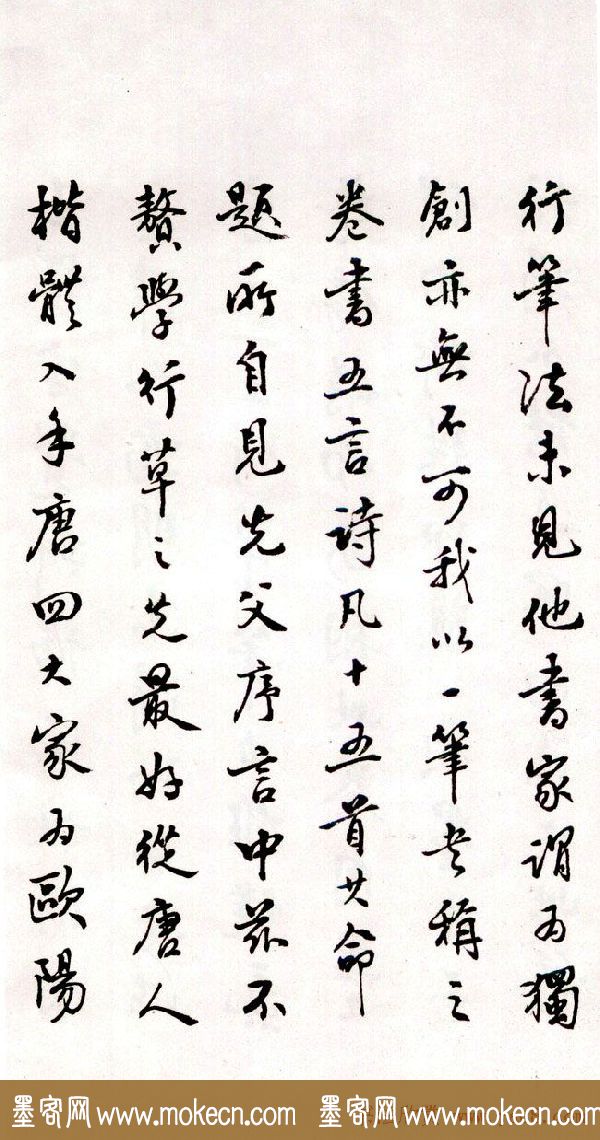 行筆法未見他書家謂為獨
創亦無不可我以一筆書稱之
卷書五言詩凡十五首其命
題所自見先父序言中茲不
贅學行草之先最好從唐人
楷體入手唐四大家為歐陽
墨客网 www.mokecn.com 墨客网 www.mokecn.com